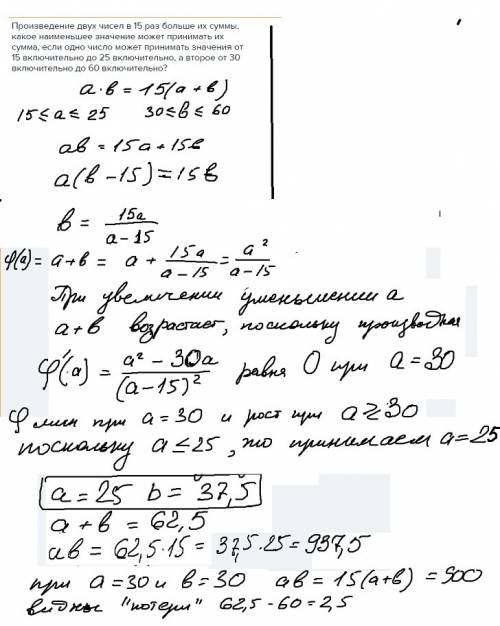 Произведение двух чисел в 15 раз больше их суммы,
какое наименьшее значение может принимать их
сумма, если одно число может принимать значения от
15 включительно до 25 включительно, а второе от 30
включительно до 60 включительно?
a·b = 15(a+b)
15≤a≤25 30≤b≤60
ab = 15a+15b
a(b-15)=15b
b = 15a/(a-15)
φ(a) = a+b = a + 15a/(a-15) = a²/(a-15)
При увеличении уменьшении a
a+b возрастает, поскольку производная
φ'(a) = (a²-30a)/(a-15)² равна 0 при a=30
φ мин при a=30 и рост при a≥30
поскольку a≤25, то принимаем a=25
a=25 b=37,5
a+b = 62,5
ab = 62,5·15 = 37,5·25 = 937,5
при a=30 и b=30 ab=15(a+b)=900
видны "потери" 62,5-60=2,5